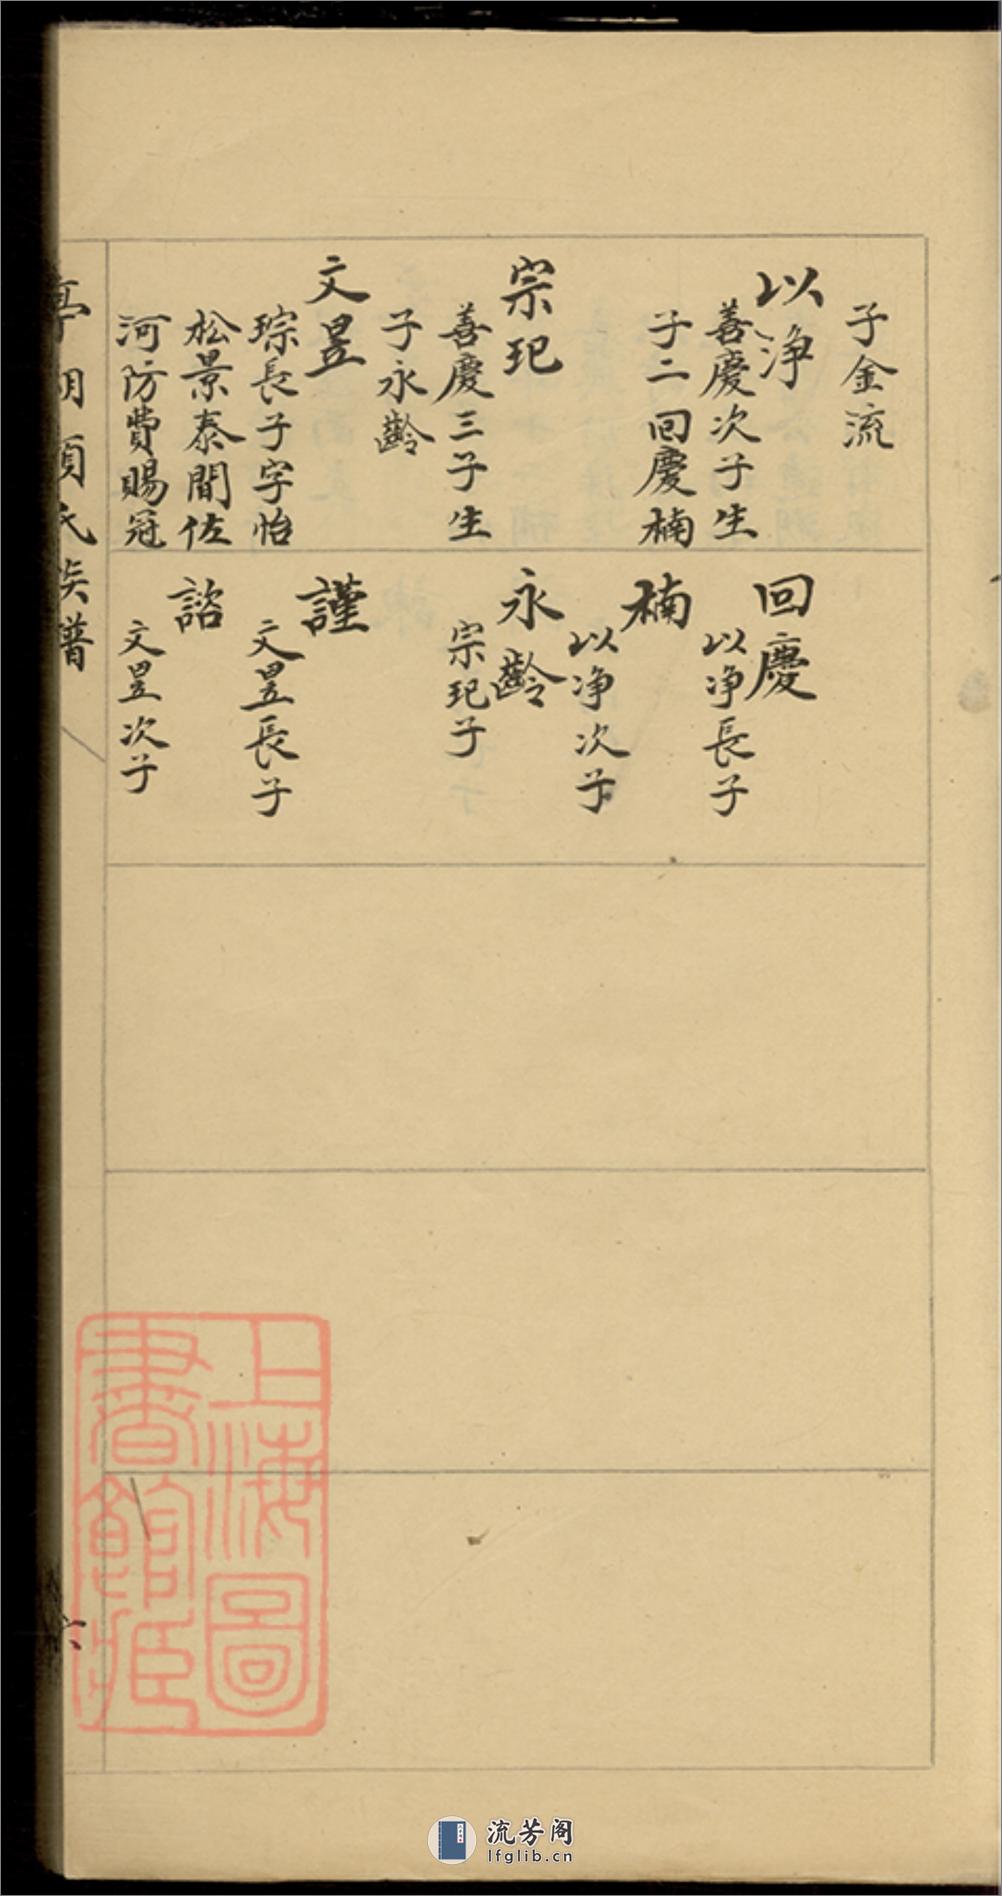 子金流
以净
善慶次子生
子二回慶楠
宗玘
善慶三子生
子永齡
文昱
琮長子字怡
松景泰間佐
河防費賜冠
回慶
以净長子
楠
以净次子
永齡
宗玘子
謹
文昱長子
諮
文昱次子
亭湖顧氏族譜
六
上海圖
書館藏
流芳阁
lfglib.cn